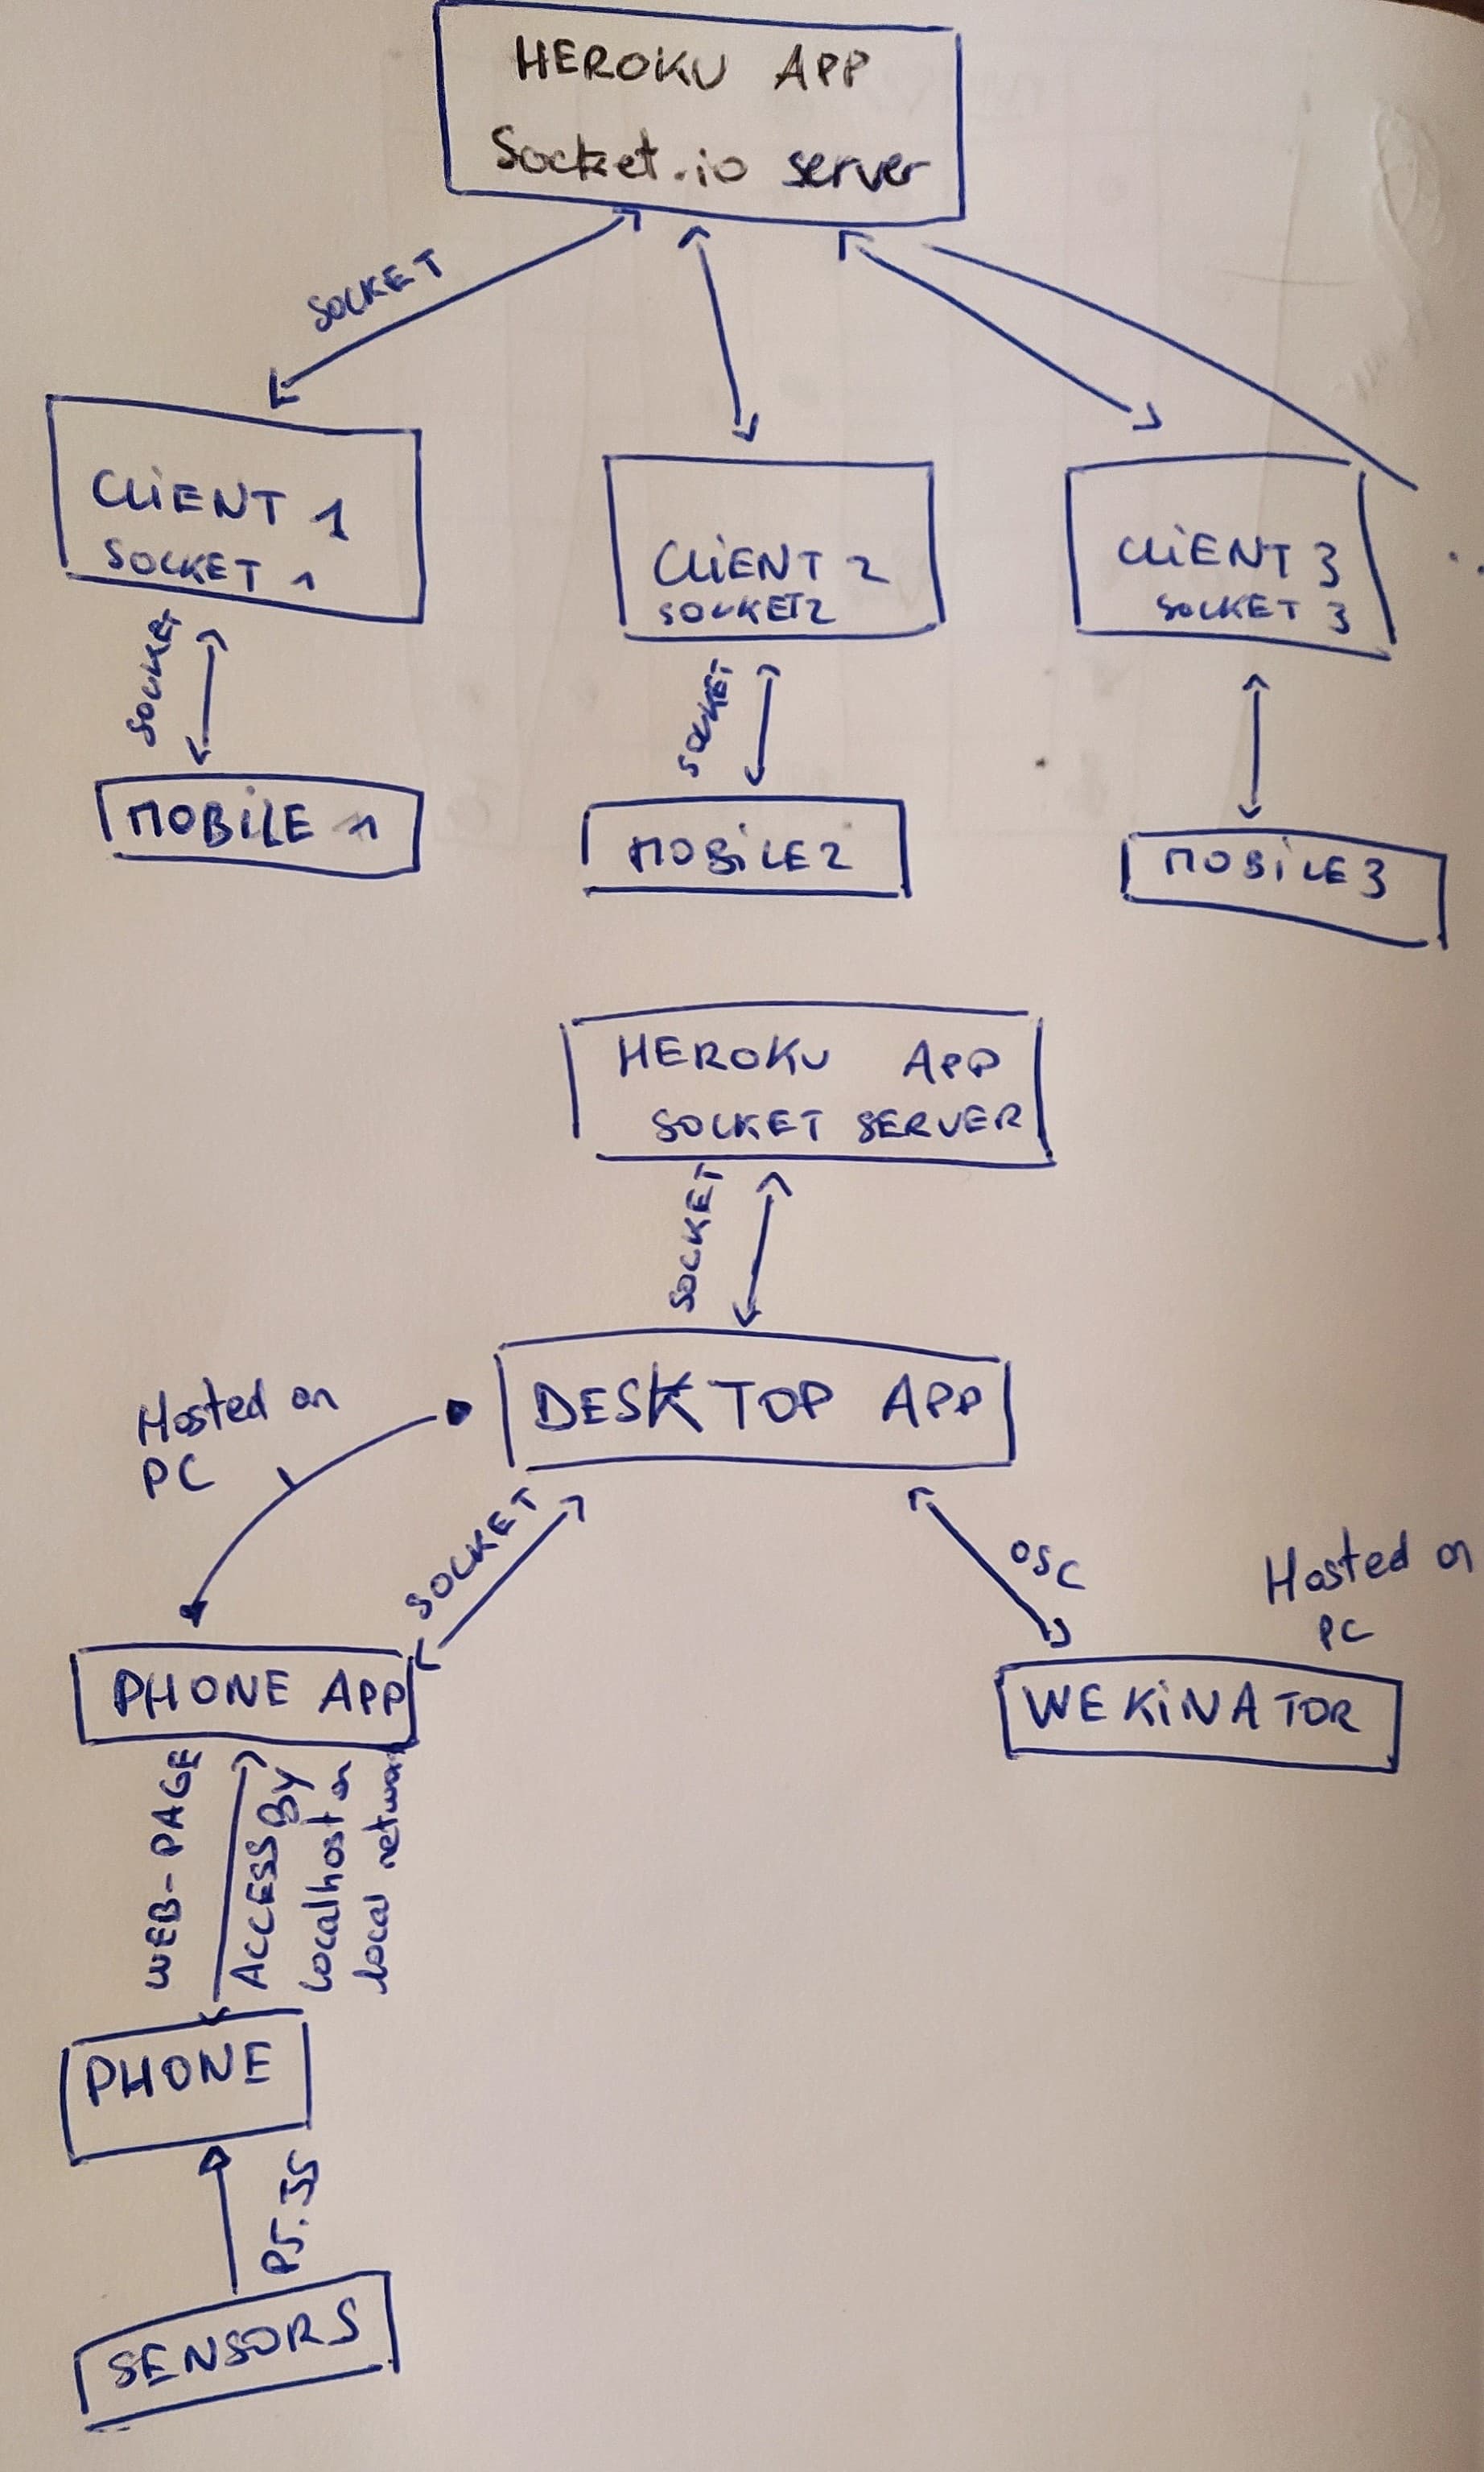 HEROKU APP
Socket.io server
SOCKET
CLIENT 1
SOCKET 1
CLIENT 2
SOCKET2
CLIENT 3
SOCKET 3
SOCKET
SOCKET
MOBILE 1
MOBILE2
MOBILE3
HEROKU APP
SOCKET SERVER
SOCKET
DESKTOP APP
Hosted on
PC
SOCKET
OSC
Hosted on
PC
PHONE APP
WEKINATOR
WEB-PAGE
ACCESS BY
localhost on
local network
PHONE
P5.JS
SENSORS